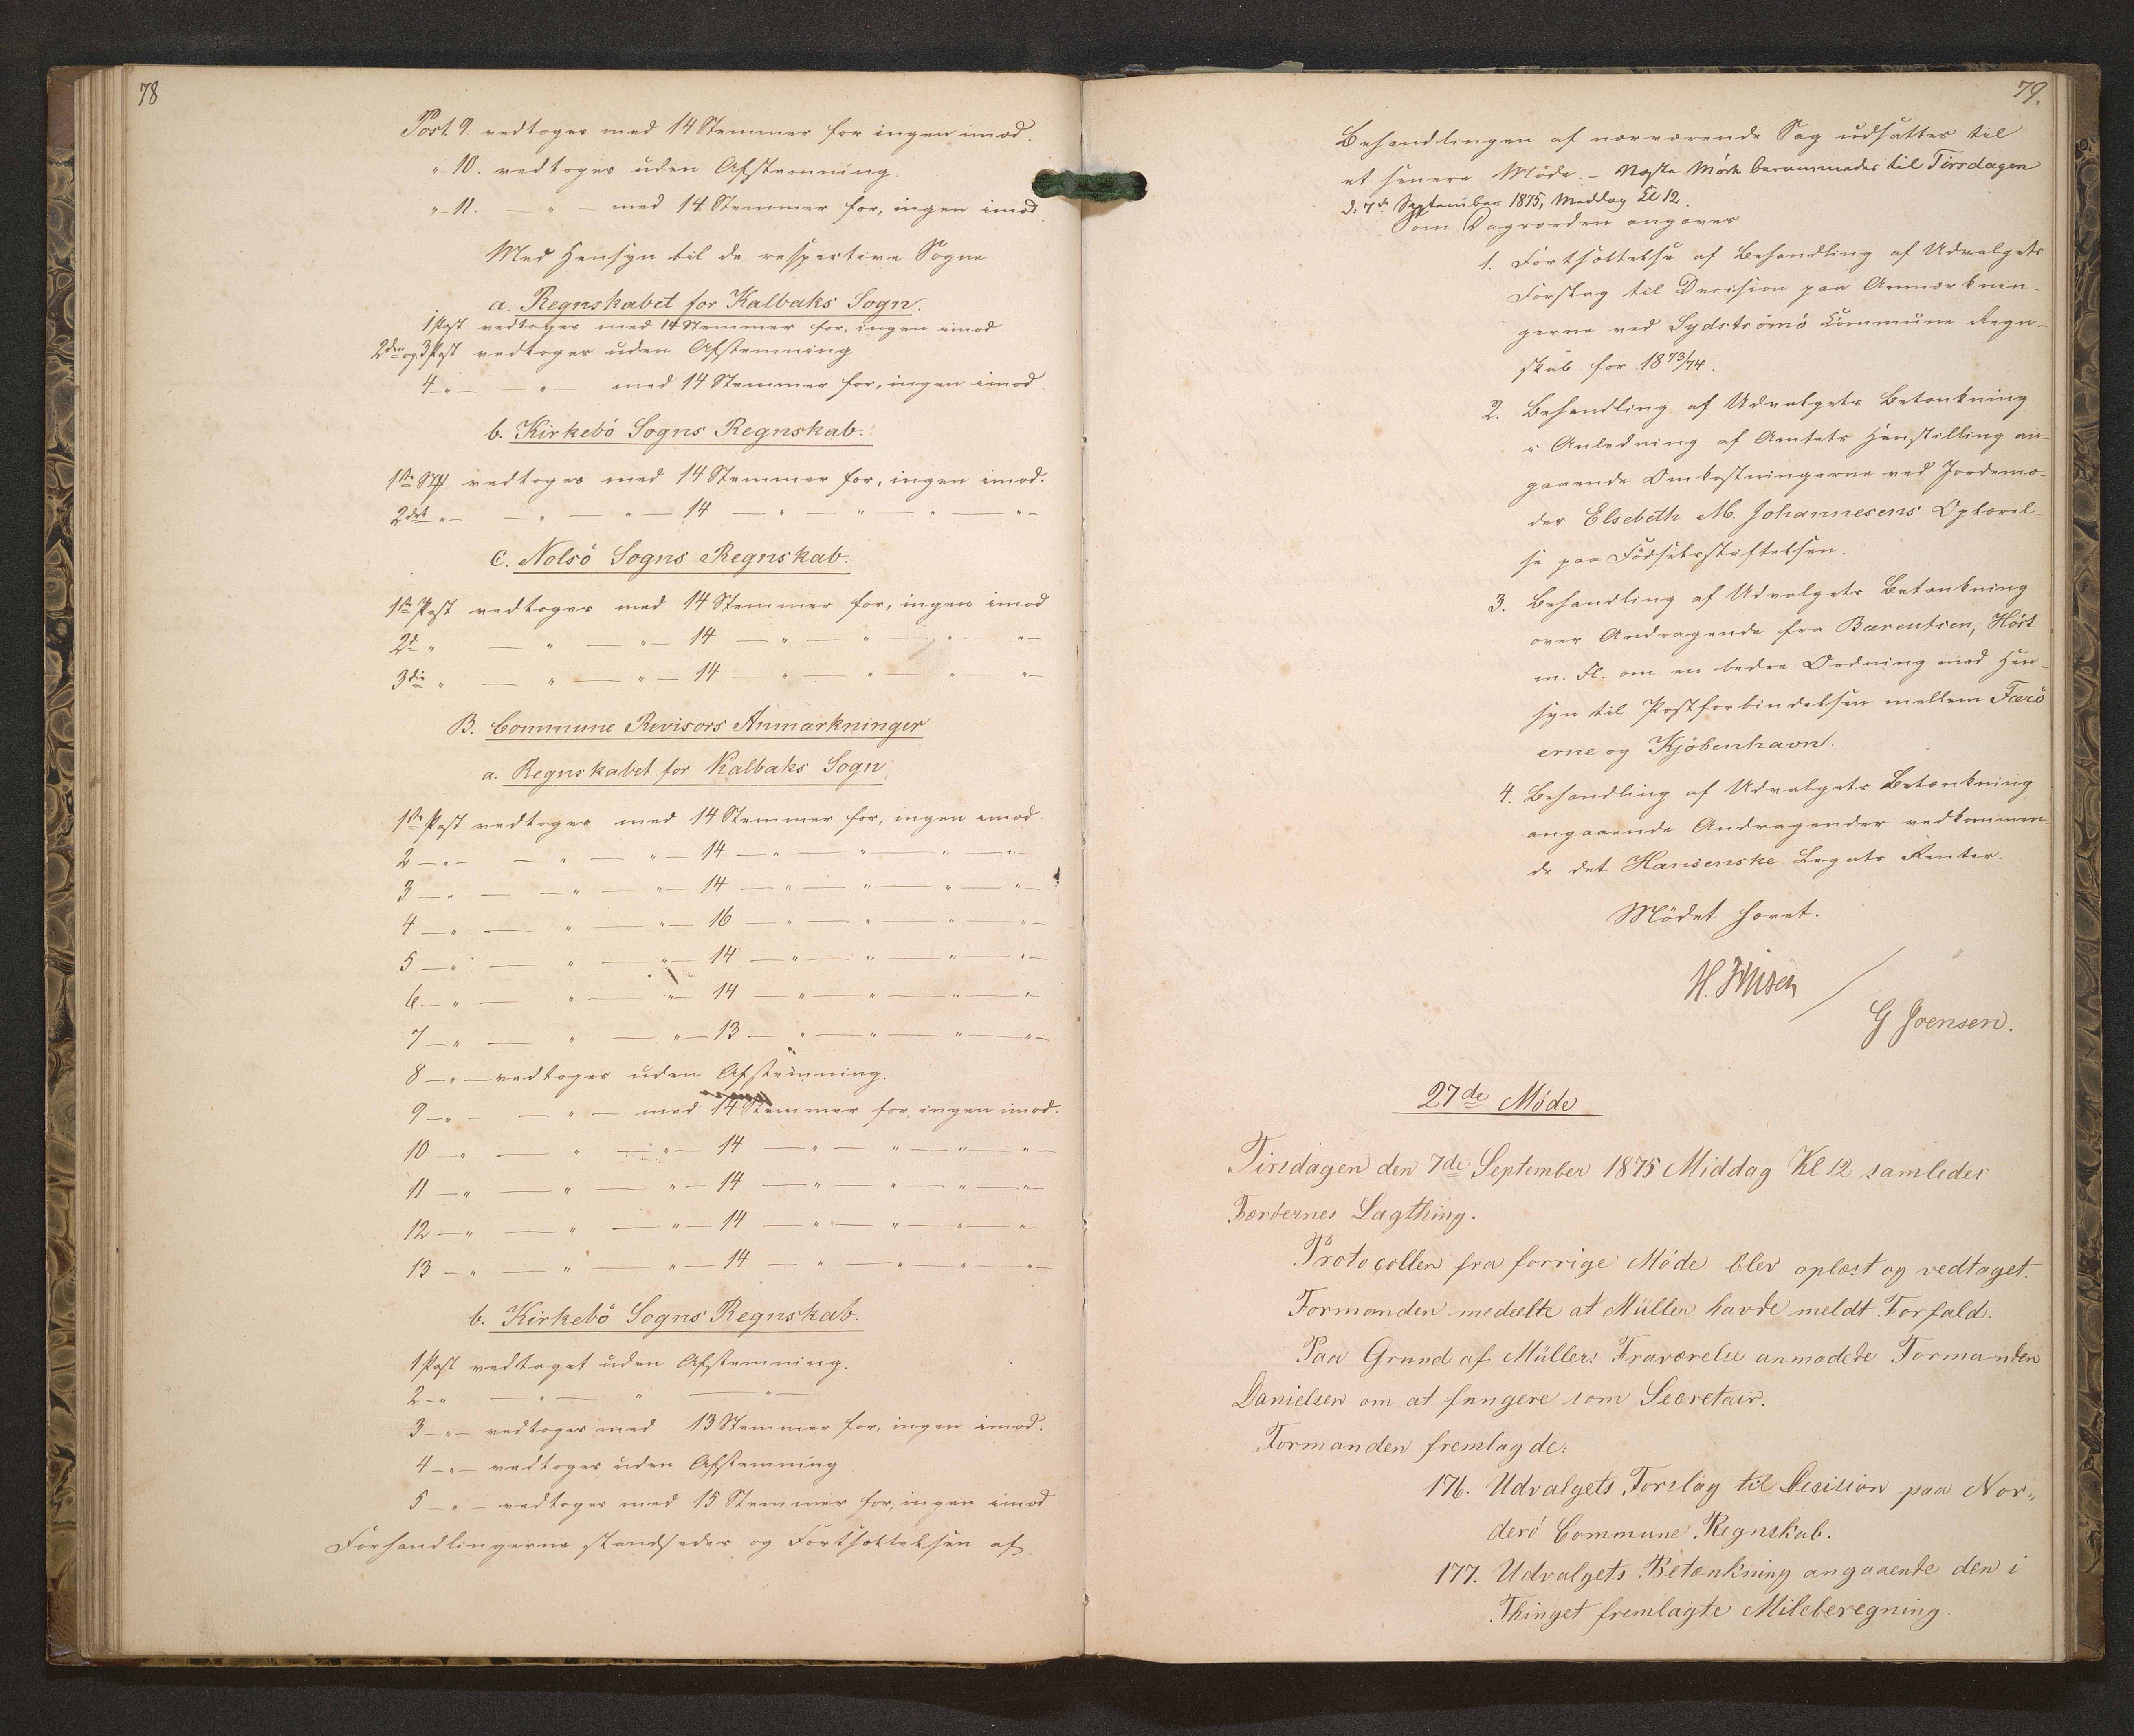 78
Post 9. vedtoges med 14 Stemmer for ingen imod.
" 10. vedtoges uden Afstemning.
" 11. — " — med 14 Stemmer for, ingen imod.
Med Hensyn til de respective Sogne
a. Regnskabet for Kalbaks Sogn.
1 Post vedtoges med 14 Stemmer for, ingen imod
2den og 3 Post vedtoges uden Afstemning
4 — " — — " — med 14 Stemmer for, ingen imod.
b. Kirkebö Sogns Regnskab.
1ste Post vedtoges med 14 Stemmer for, ingen imod.
2det " — — " — " — 14 — " — " — " — " —
c. Nolsö Sogns Regnskab.
1ste Post vedtoges med 14 Stemmer for, ingen imod
2d " — " — " — 14 — " — " — " — " —
3die " — " — " — 14 — " — " — " — " —
B. Commune Revisors Anmærkninger
a. Regnskabet for Kalbaks Sogn
1ste Post vedtoges med 14 Stemmer for, ingen imod.
2 — " — — " — " — 14 — " — " — " — " —
3 — " — — " — " — 14 — " — " — " — " —
4 — " — — " — " — 16 — " — " — " — " —
5 — " — — " — " — 14 — " — " — " — " —
6 — " — — " — " — 14 — " — " — " — " —
7 — " — — " — " — 13 — " — " — " — " —
8 — " — vedtoges uden Afstemning.
9 — " — — " — med 14 Stemmer for, ingen imod.
10 — " — — " — " — 14 — " — " — " — " —
11 — " — — " — " — 14 — " — " — " — " —
12 — " — — " — " — 14 — " — " — " — " —
13 — " — — " — " — 14 — " — " — " — " —
b. Kirkebö Sogns Regnskab.
1 Post vedtaget uden Afstemning.
2 — " — " — " — " —
3 — " — vedtoges med 13 Stemmer for, ingen imod.
4 — " — vedtoges uden Afstemning
5 — " — vedtoges med 15 Stemmer for, ingen imod
Forhandlingerne standsedes og Fortsættelsen af
79.
Behandlingen af nærværende Sag udsattes til
et senere Möde. — Næste Möde berammedes til Tirsdagen
d. 7de September 1875, Middag Kl 12.
Som Dagsorden angaves
1. Fortsættelse af Behandling af Udvalgets
Forslag til Decision paa Anmærknin-
gerne ved Sydströmö Commune Regn-
skab for 1873/74.
2. Behandling af Udvalgets Betænkning
i Anledning af Amtets Henstilling an-
gaaende Omkostningerne ved Jordemo-
der Elsebeth M. Johannesens Oplærel-
se paa Födselsstiftelsen.
3. Behandling af Udvalgets Betænkning
over Andragende fra Bærentsen, Höst
m. Fl. om en bedre Ordning med Hen-
syn til Postforbindelsen mellem Færö
erne og Kjöbenhavn.
4. Behandling af Udvalgets Betænkning
angaaende Andragender vedkommen-
de det Hansenske Legats Renter.
Mödet hævet.
H. Finsen
G Joensen.
27de Möde
Tirsdagen den 7de September 1875 Middag Kl 12 samledes
Færöernes Lagthing.
Protocollen fra forrige Möde blev oplæst og vedtaget.
Formanden meddelte at Müller havde meldt Forfald.
Paa Grund af Müllers Fraværelse anmodede Formanden
Danielsen om at fungere som Secretair.
Formanden fremlagde:
176. Udvalgets Forslag til Decision paa Nor„
derö Commune Regnskab.
177. Udvalgets Betænkning angaaende den i
Thinget fremlagte Mileberegning.